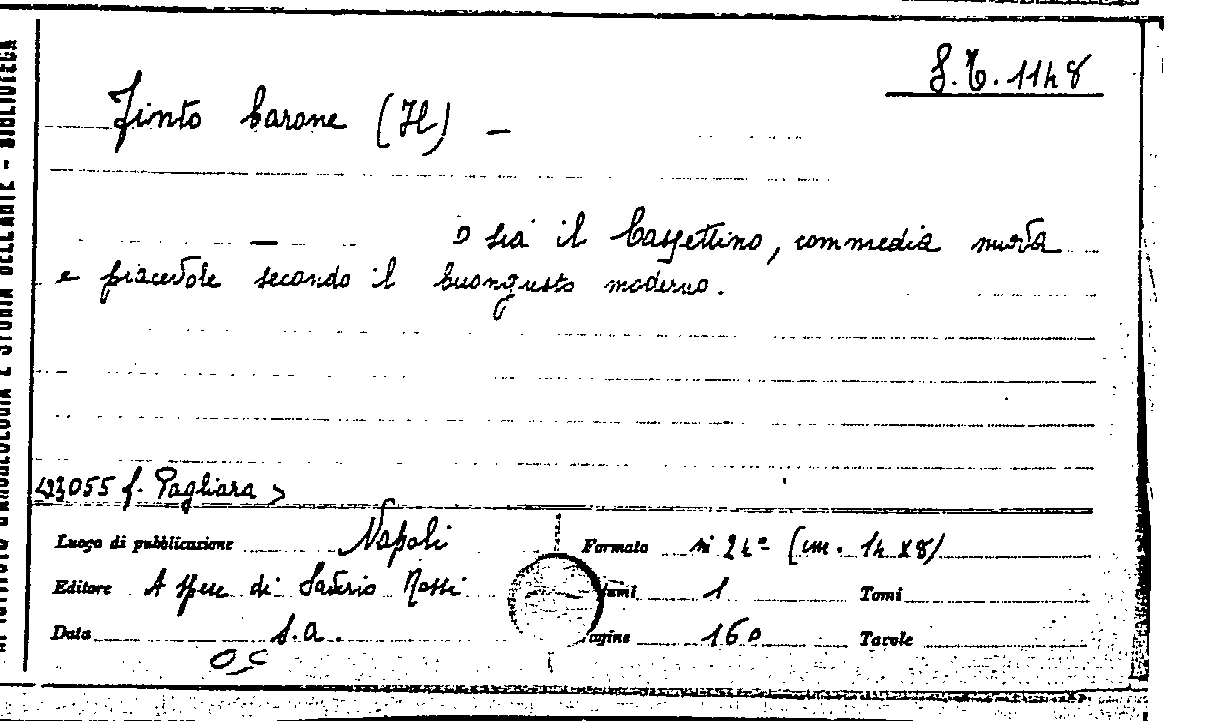 S.T. 1148
Finto Barone (Il) –
— O sia il Cassettino, commedia nuova
e piacevole secondo il buongusto moderno.
<23055 f. Pagliara>
Luogo di pubblicazione Napoli Formato in 24° (cm. 14 x 8)
Editore A spese di Saverio Rossi umi 1 Tomi
Data s.a. agine 160 Tavole
ISTORIA DELL'ARTE - BIBLIOTECA